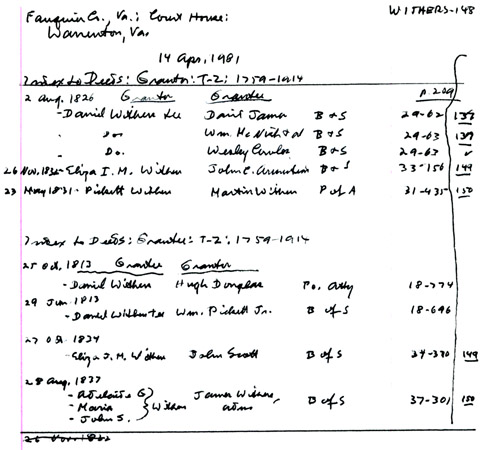 Fauquier Co., Va.; Court House: WITHERS-148
Warrenton, Va.
14 Apr, 1981
Index to Deeds: Grantor: T-Z: 1759-1914
2 Aug. 1826 Grantor Grantee p 209
- Daniel Withers Lee David James B & S 29-62 139
- Do. Wm. B & S 29-63 139
Do. Wesley B & S 29-63 ✓
26 Nov. 1832- Eliza I. M. Withers John C. B & S 33-156 149
23 May 1831- Pickett Withers Martin Withers P of A 31-435 150
Index to Deeds: Grantee: T-Z: 1759-1914
25 Oct, 1813 Grantee Grantor
- Daniel Withers Hugh Douglas Po. Atty 18-774
29 Jun. 1813
- Daniel Withers Lee Wm. Pickett Jr. B of S 18-696
27 Oct. 1834
- Eliza I. M. Withers John Scott B of S 34-370 149
28 Aug. 1837
- Adelaide G }
- Maria } Withers James Withers, adm B of S 37-301 150
- John S. }